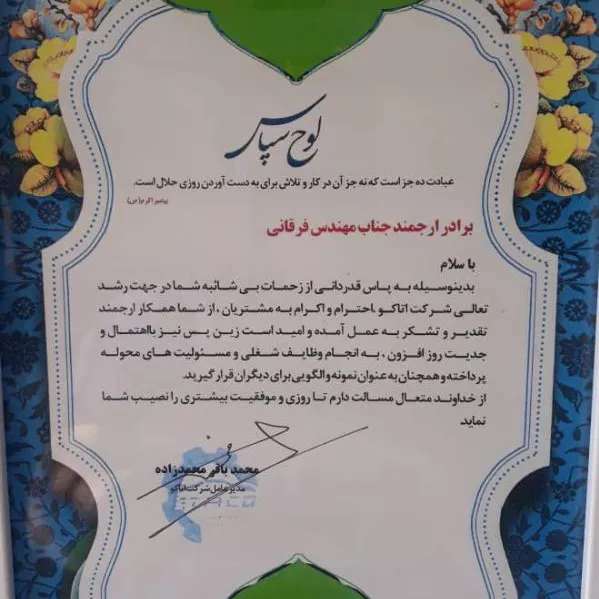 لوح سپاس
عبادت ده جز است که نه جز آن در کار و تلاش برای به دست آوردن روزی حلال است.
پیامبر اکرم(ص)
برادر ارجمند جناب مهندس فرقانی
با سلام
بدینوسیله به پاس قدردانی از زحمات بی شائبه شما در جهت رشد
تعالی شرکت اتاکو ،احترام و اکرام به مشتریان ، از شما همکار ارجمند
تقدیر و تشکر به عمل آمده و امید است زین پس نیز بااهتمال و
جدیت روز افزون ، به انجام وظایف شغلی و مسئولیت های محوله
پرداخته و همچنان به عنوان نمونه و الگویی برای دیگران قرار گیرید.
از خداوند متعال مسالت دارم تا روزی و موفقیت بیشتری را نصیب شما
نماید
محمد باقر محمدزاده
مدیرعامل شرکت اتاکو